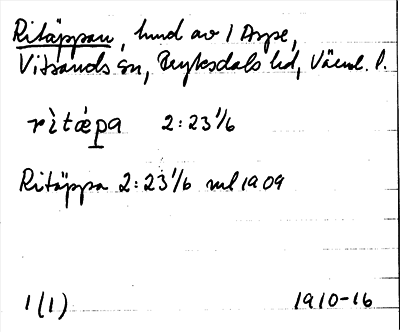 Ritäppan, hmd av 1 Arpe,
Vitsands sn, Fryksdals hd, Värml. l.
rìtápa 2:23 1/6
Ritäppa 2:23 1/6 ml 1909
1(1) 1910-16